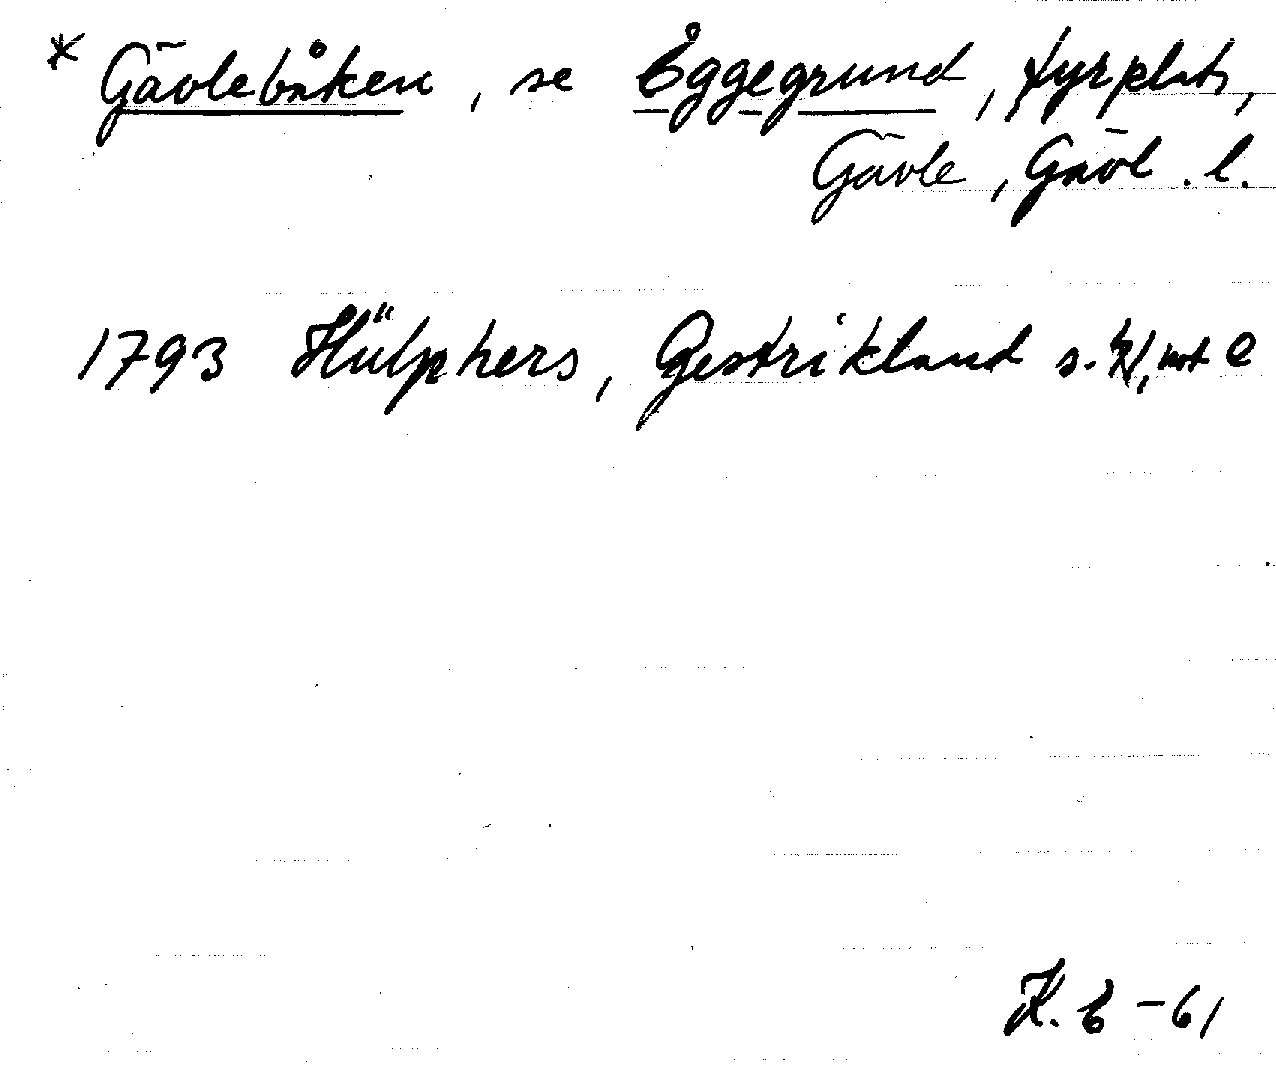 * Gävlebåken, se Eggegrund, fyrplats,
Gävle, Gävl. l.
1793 Hülphers, Gestrikland s. , not e
K. E -61